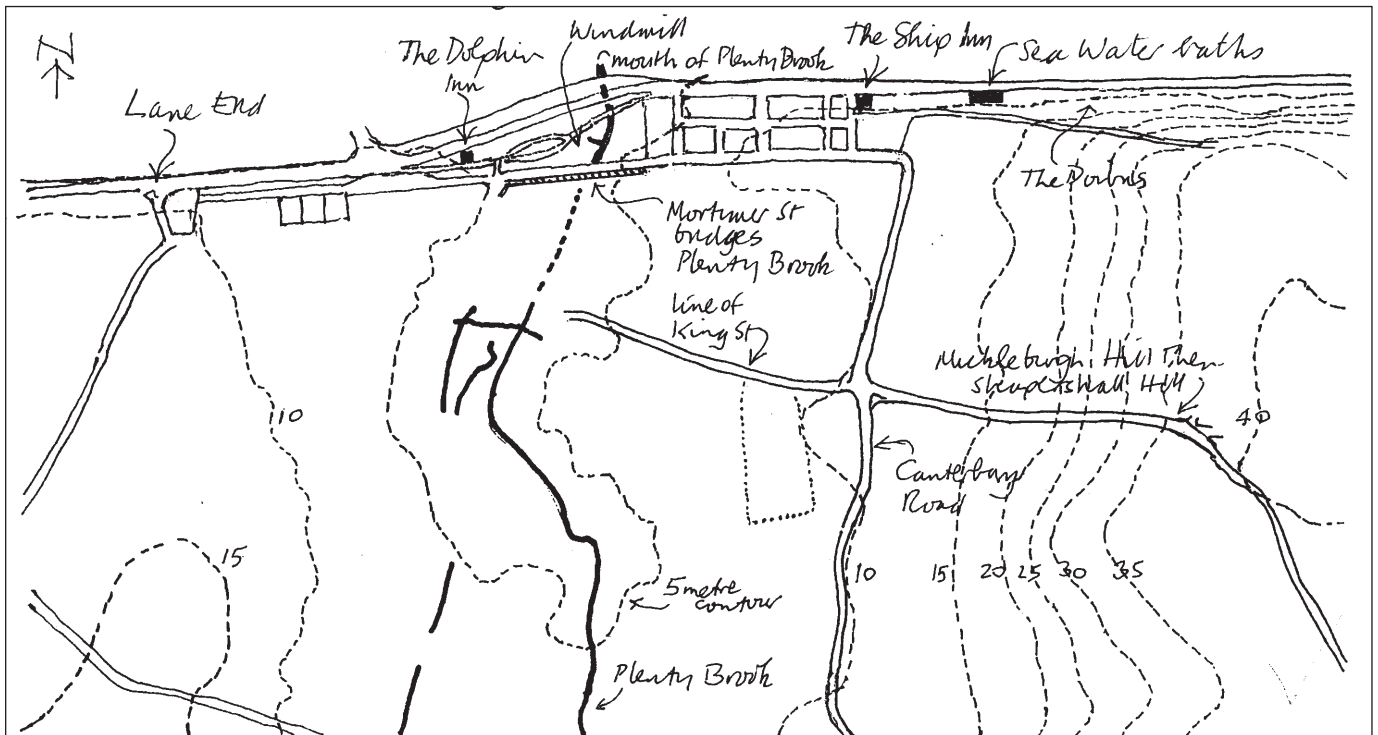 N
Lane End
The Dolphin
Inn
Windmill
mouth of Plenty Brook
The Ship Inn
Sea Water baths
The Downs
Mortimer St
bridges
Plenty Brook
line of
King St
Mickleburgh Hill then
Hill
40
Canterbury
Road
10
15
5 metre
contour
Plenty Brook
10
15
20
25
30
35